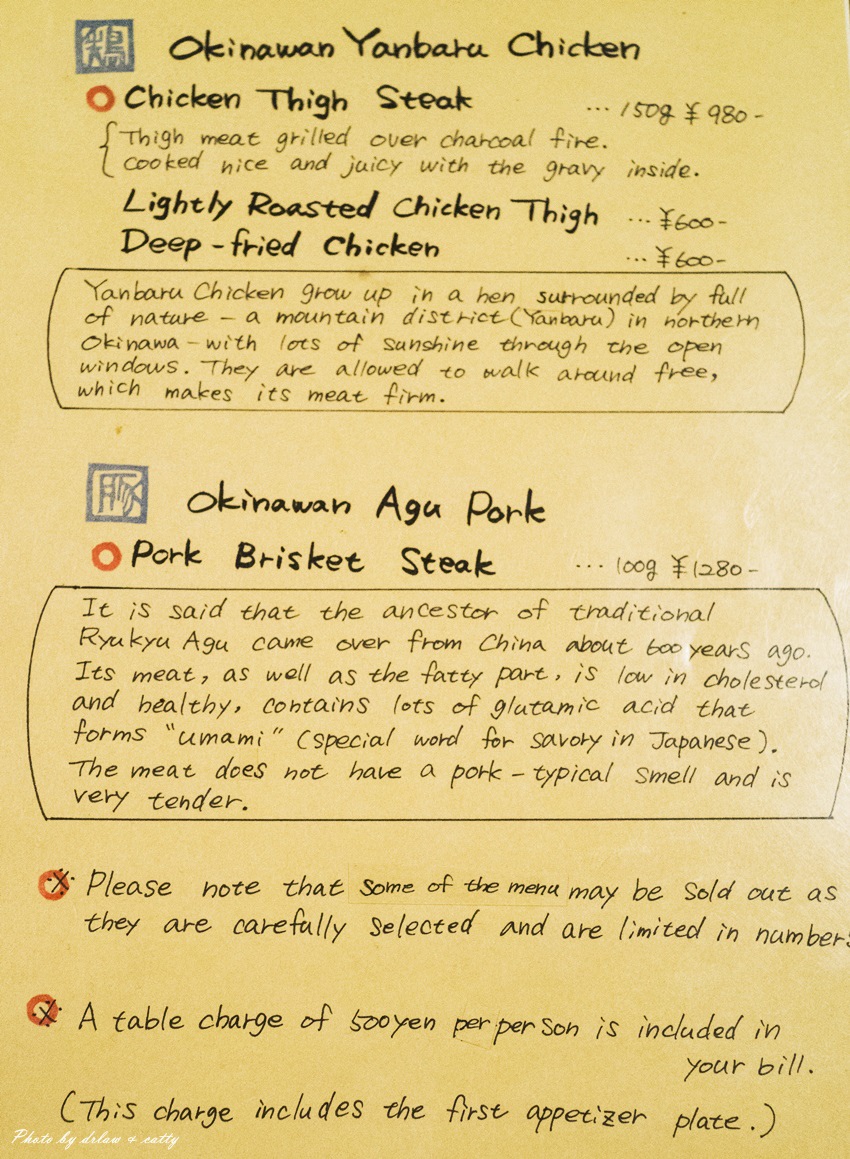 鶏 Okinawan Yanbaru Chicken
Chicken Thigh Steak ... 150g ¥980-
Thigh meat grilled over charcoal fire.
cooked nice and juicy with the gravy inside.
Lightly Roasted Chicken Thigh ... ¥600-
Deep-fried Chicken ... ¥600-
Yanbaru Chicken grow up in a hen surrounded by full
of nature - a mountain district (Yanbaru) in northern
Okinawa - with lots of sunshine through the open
windows. They are allowed to walk around free,
which makes its meat firm.
豚 Okinawan Agu Pork
Pork Brisket Steak ... 100g ¥1280-
It is said that the ancestor of traditional
Ryukyu Agu came over from China about 600 years ago.
Its meat, as well as the fatty part, is low in cholesterol
and healthy, contains lots of glutamic acid that
forms "umami" (special word for savory in Japanese).
The meat does not have a pork-typical smell and is
very tender.
※ Please note that some of the menu may be sold out as
they are carefully selected and are limited in numbers
※ A table charge of 500yen per person is included in
your bill.
(This charge includes the first appetizer plate.)
Photo by drlaw & catty